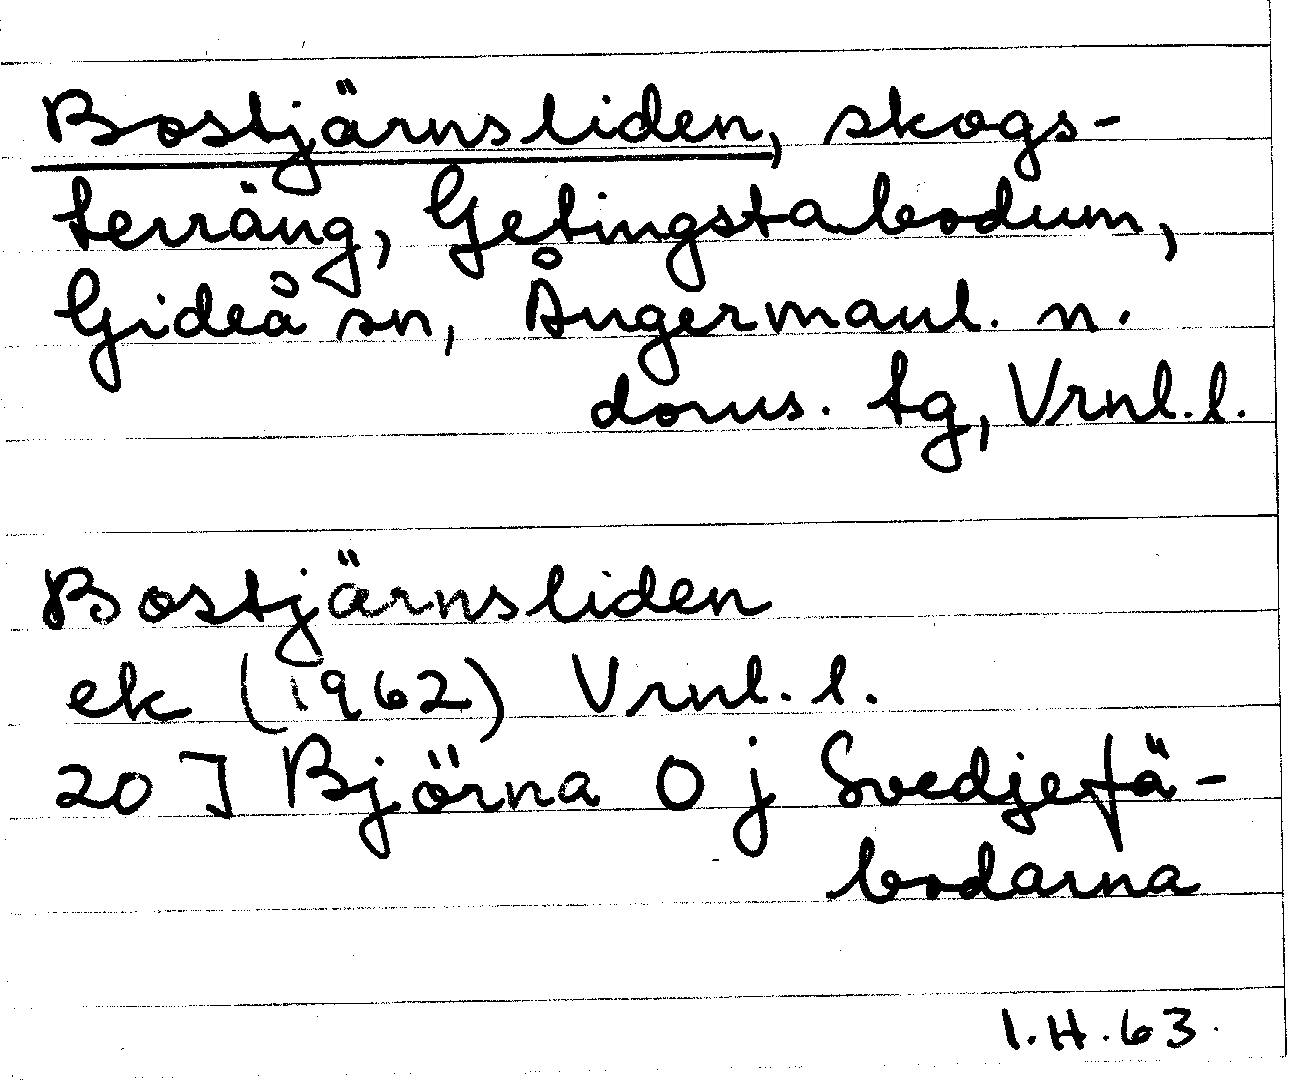 Bostjärnsliden, skogs-
terräng, Getingstabodum,
Gideå sn, Ångermanl. n.
doms. tg, Vrnl. l.
Bostjärnsliden
ek (1962) Vrnl. l.
20 J Björna O j Svedjefä-
bodarna
I.H. 63.